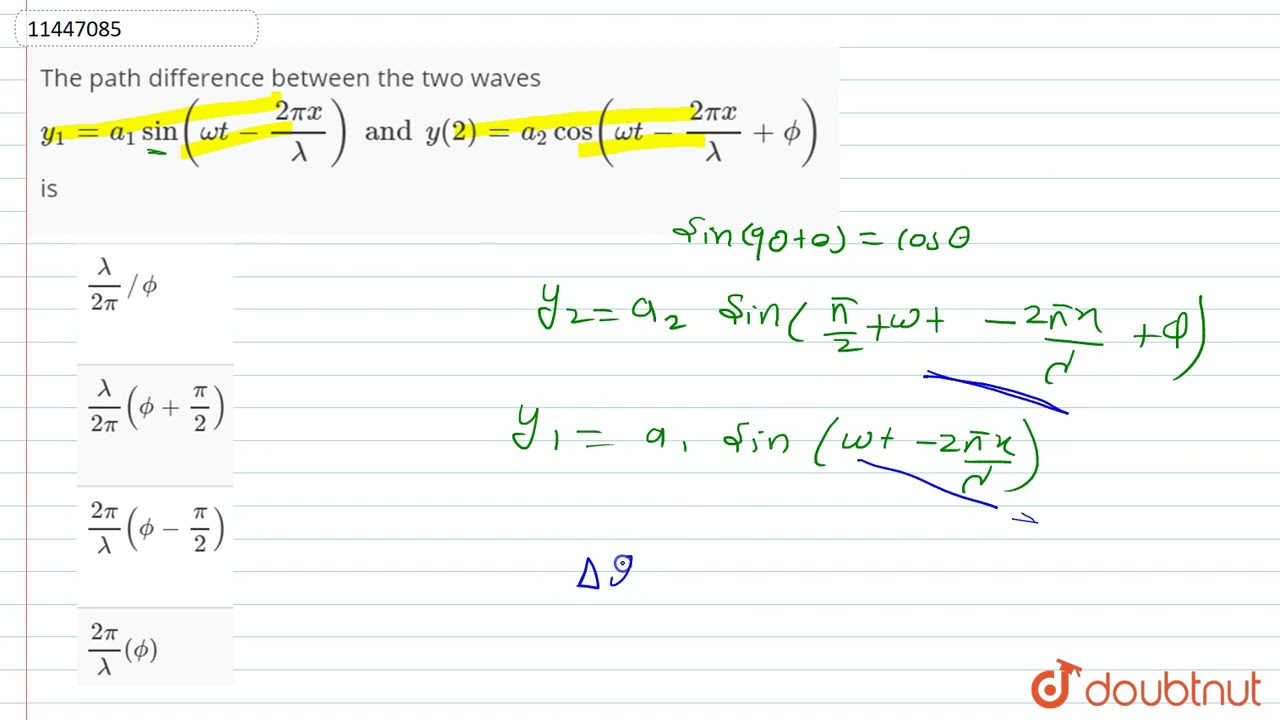 11447085
The path difference between the two waves
y₁ = a₁ sin(ωt − 2πx/λ) and y(2) = a₂ cos(ωt − 2πx/λ + ϕ)
is
λ/2π /ϕ
λ/2π (ϕ + π/2)
2π/λ (ϕ − π/2)
2π/λ (ϕ)
Sin(90+θ) = cosθ
y₂ = a₂ Sin(π/2 + ωt − 2πx/λ + ϕ)
y₁ = a₁ Sin(ωt − 2πx/λ)
Δ
doubtnut